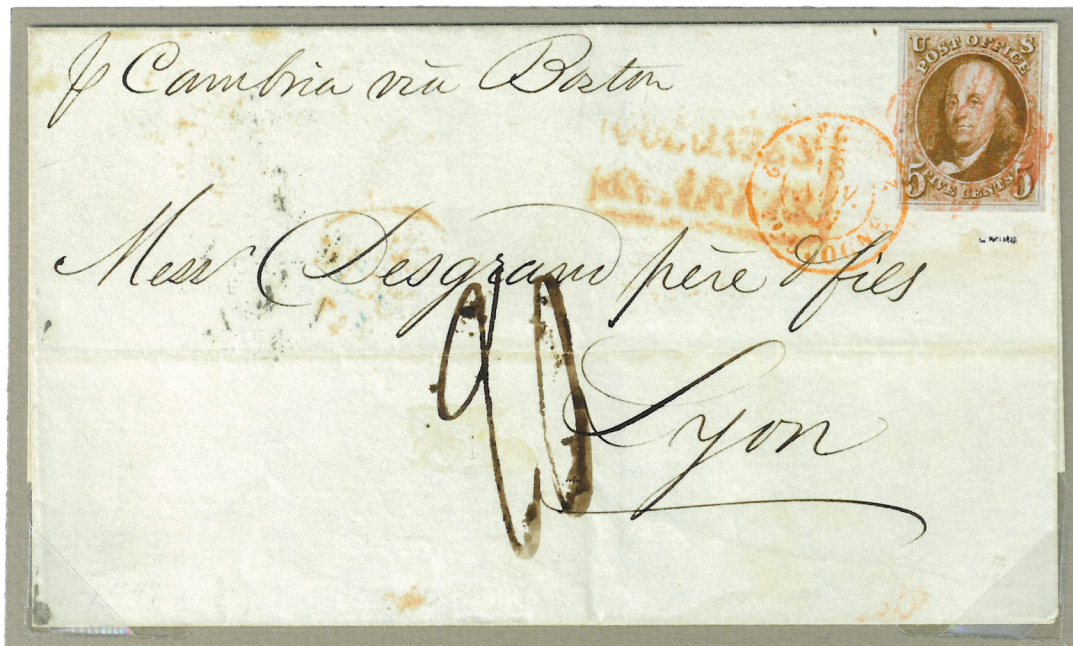 p Cambria via Boston
U S
POST OFFICE
5 FIVE CENTS 5
Mess Desgrand père & fils
20
Lyon